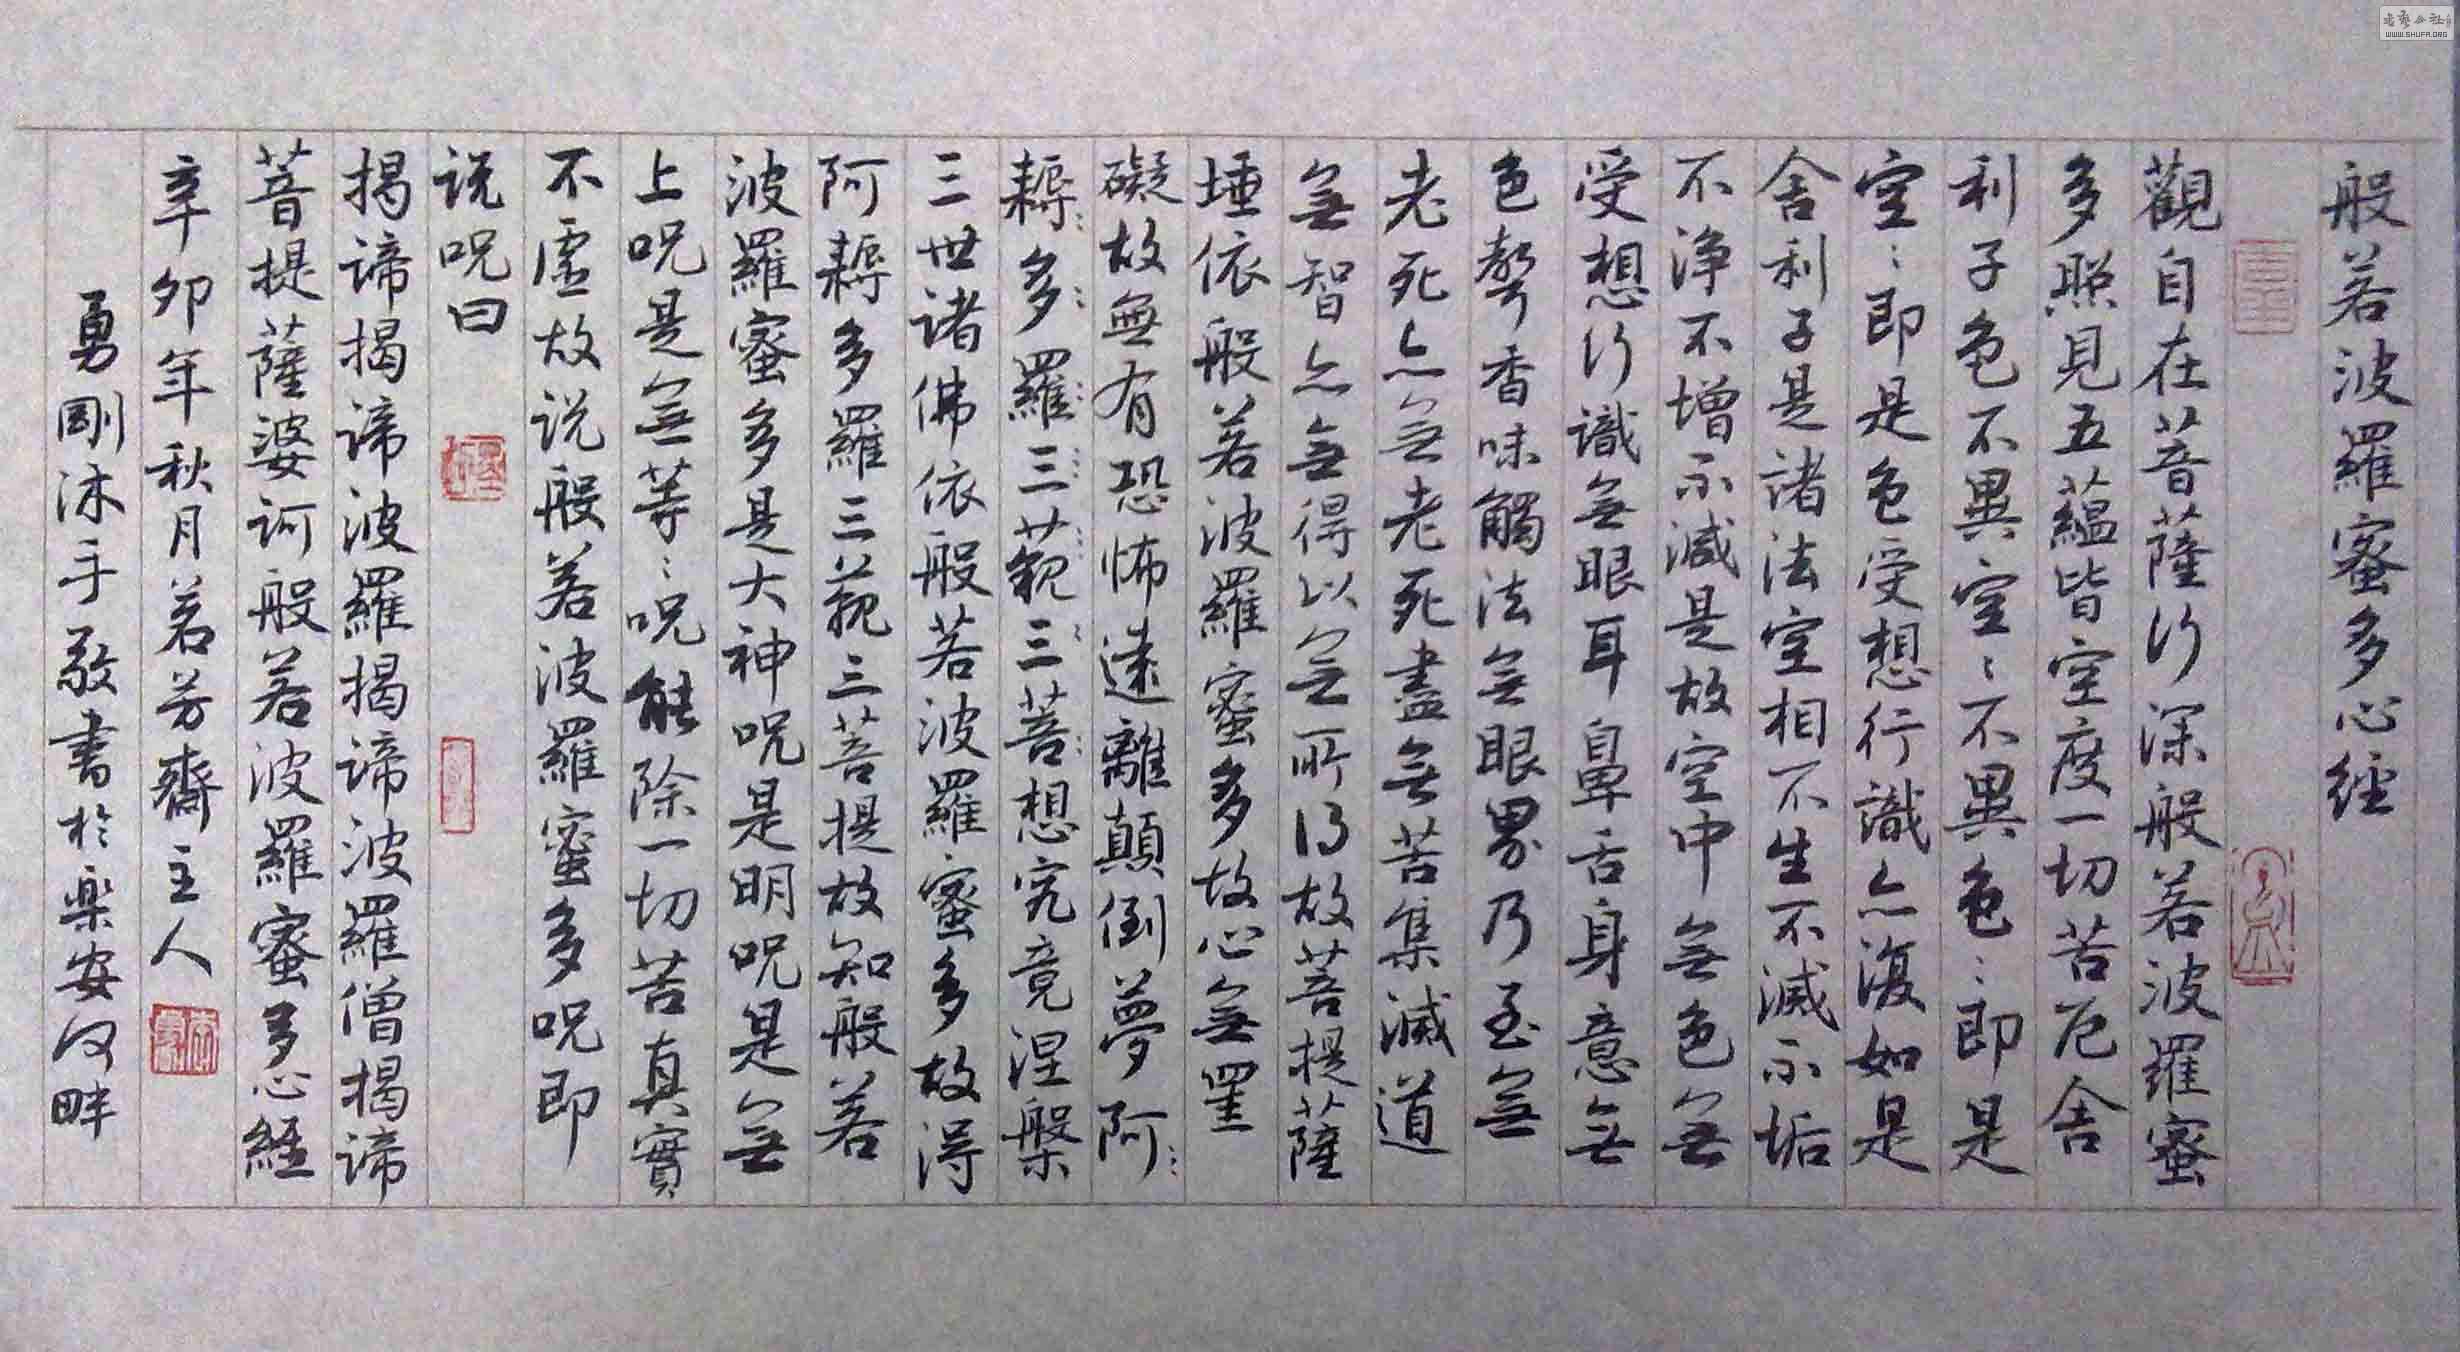 般若波羅蜜多心經
觀自在菩薩行深般若波羅蜜
多照見五蘊皆空度一切苦厄舍
利子色不異空〻不異色〻即是
空〻即是色受想行識亦復如是
舍利子是諸法空相不生不滅不垢
不淨不增不減是故空中無色無
受想行識無眼耳鼻舌身意無
色聲香味觸法無眼界乃至無
老死亦無老死盡無苦集滅道
無智亦無得以無所得故菩提薩
埵依般若波羅蜜多故心無罣
礙故無有恐怖遠離顛倒夢阿
耨多羅三藐三菩想究竟涅槃
三世諸佛依般若波羅蜜多故得
阿耨多羅三藐三菩提故知般若
波羅蜜多是大神咒是明咒是無
上咒是無等〻咒能除一切苦真實
不虛故說般若波羅蜜多咒即
說咒曰
揭諦揭諦波羅揭諦波羅僧揭諦
菩提薩婆訶般若波羅蜜多心經
辛卯年秋月茗芳齋主人
勇剛沐手敬書於楽安河畔
WWW.SHUFA.ORG